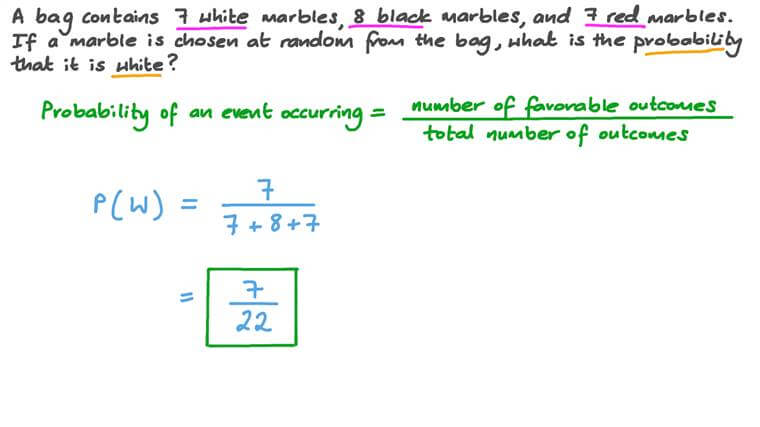 A bag contains 7 white marbles, 8 black marbles, and 7 red marbles.
If a marble is chosen at random from the bag, what is the probability
that it is white?
Probability of an event occurring = number of favorable outcomes
total number of outcomes
P(W) = 7
7 + 8 + 7
= 7
22